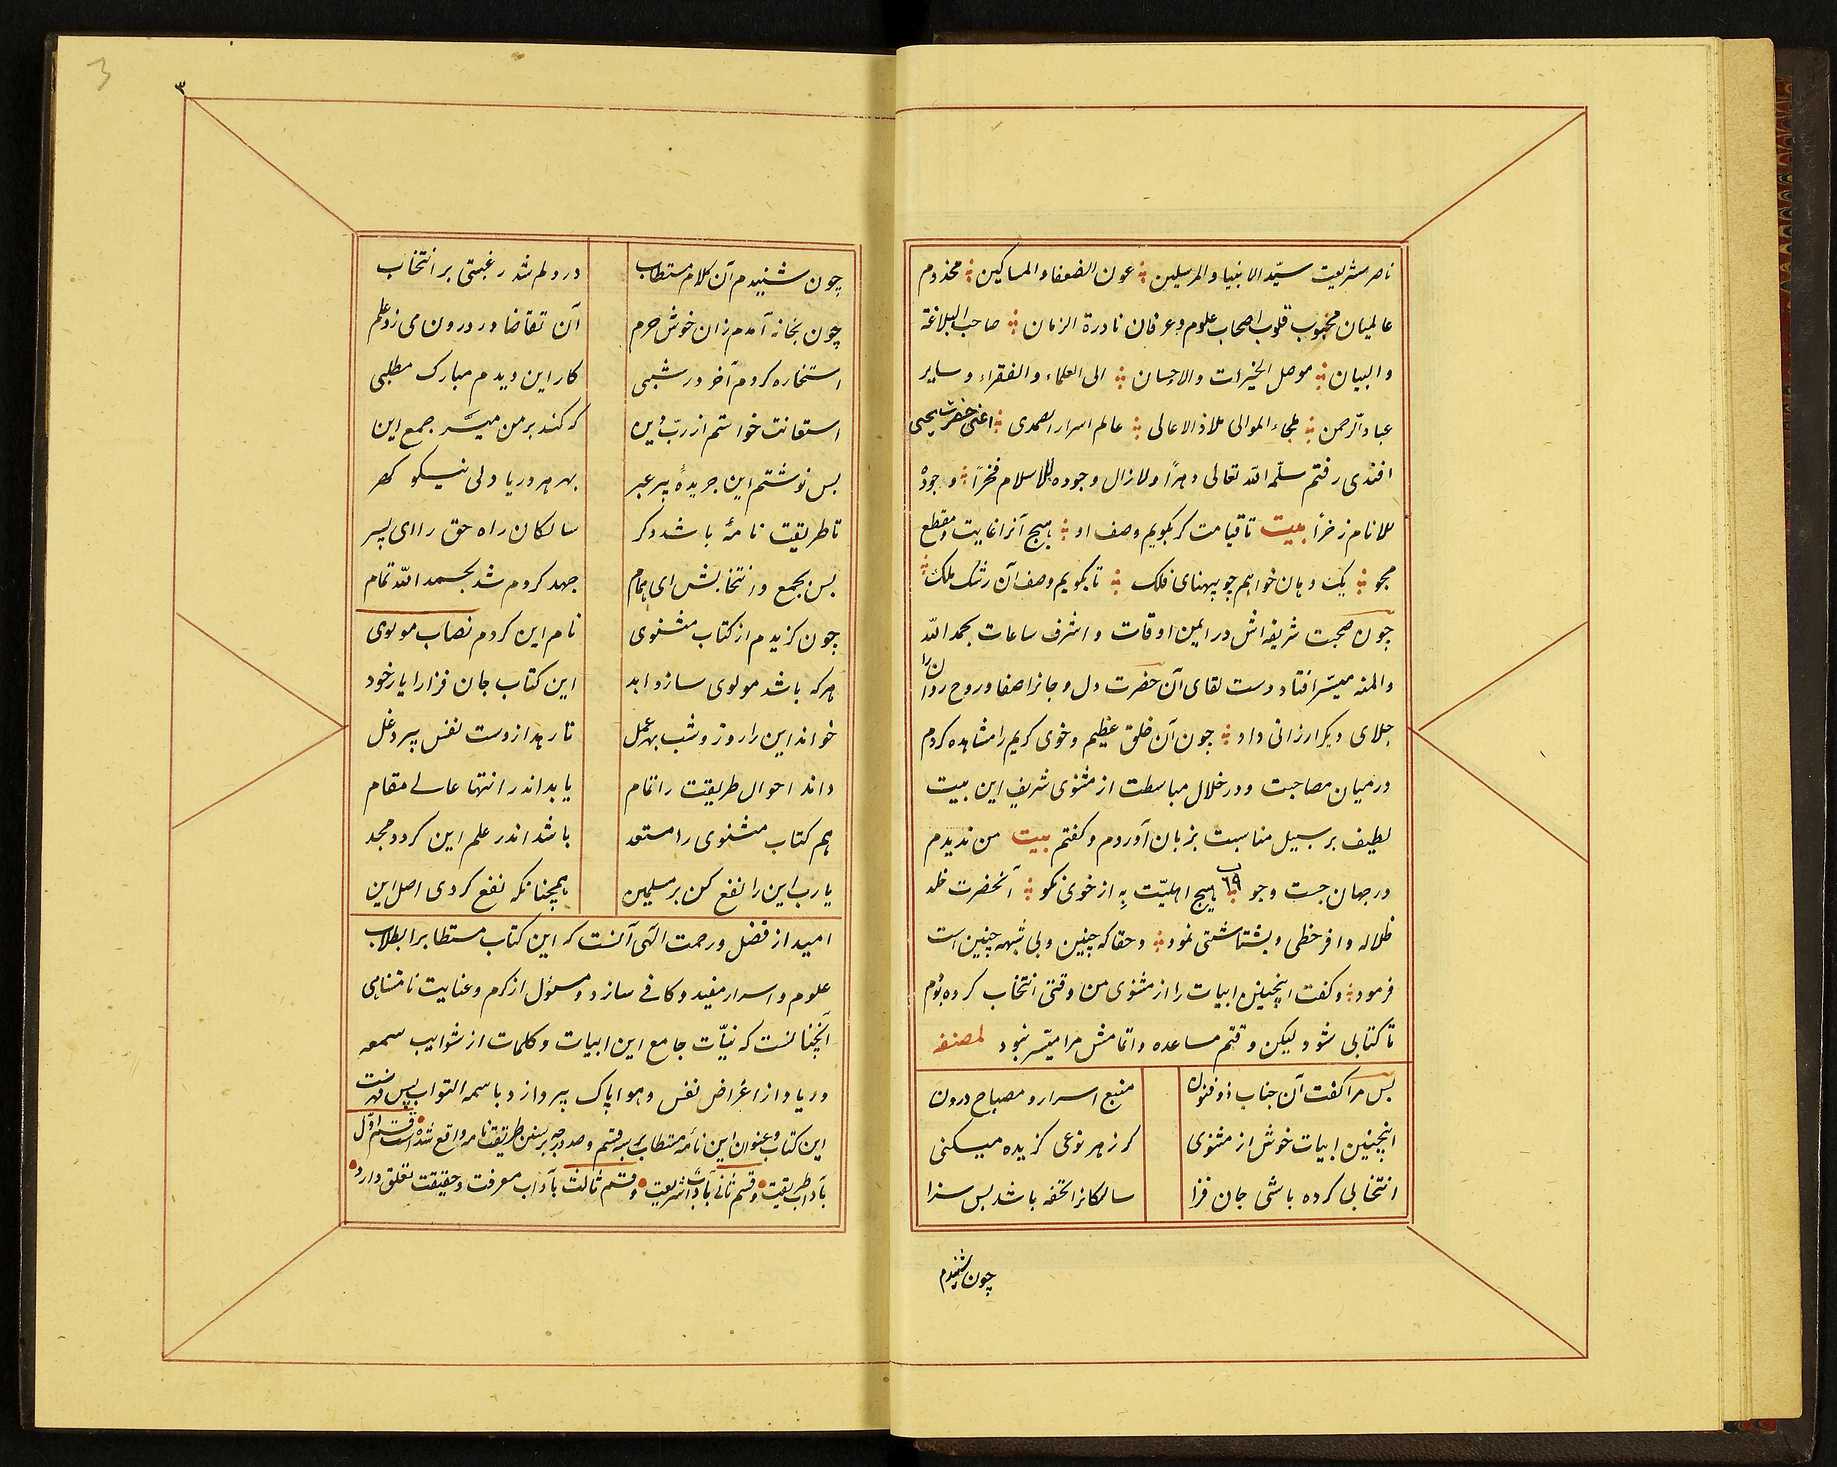 ناصر شریعت سیّد الانبیا والمرسلین عون الضعفاء والمساکین مخدوم
عالمیان محبوب قلوب اصحاب علوم وعرفان نادرة الزمان صاحب البلاغة
والبیان موصل الخیرات والاحسان الی العلماء والفقراء وسایر
عباد الرّحمن ملجاء الموالی ملاذ الاعالی عالم اسرار الصمدی اعنی حضرت یحیی
افندی رفتم سلّمه الله تعالی دهرًا ولا زال وجوده للاسلام فخرًا وجودُه
للانام زخرًا بیت تا قیامت کر بکویم وصف او هیچ آنرا غایت ومقطع
مجو یک دهان خواهم چو پهنای فلک تا بکویم وصف آن رشک ملک
چون صحبت شریفه اش در ایمن اوقات و اشرف ساعات بحمد الله
والمنه میسّر افتاد و دست لقای آن حضرت دل و جانرا صفا و روح روانرا
جلای دیکر ارزانی داد چون آن خلق عظیم وخوی کریم را مشاهده کردم
در میان مصاحبت و در خلال مباسطت از مثنوی شریف این بیت
لطیف بر سبیل مناسبت بزبان آوردم وکفتم بیت من ندیدم
در جهان جست وجو هیچ اهلیّت بِه از خوی نکو آنحضرت خلد
ظلاله وافر حظی و بشتاشتی نمود و حقا که چنین و بی شبهه چنین است
فرمود وکفت اینچنین ابیات را از مثنوی من وقتی انتخاب کرده بودم
تا کتابی شود لیکن وقتم مساعده و اتمامش مرا میّسر نبود لمصنفه
بس مرا کفت آن جناب ذو فنون منبع اسرار و مصباح درون
اینچنین ابیات خوش از مثنوی کر ز هر نوعی کزیده میکنی
انتخابی کرده باشی جان فزا سالکانرا تحفه باشد بس سزا
چون شنیدم
٣
3
چون شنیدم آن کلام مستطاب در دلم شد رغبتی بر انتخاب
چون بخانه آمدم زان خوش حرم آن تقاضا در درون می زد علم
استخاره کردم آخر در شبی کار این دیدم مبارک مطلبی
استعانت خواستم از ربّ دین که کند بر من میسَّر جمع این
بس نوشتم این جریدهٔ پر عبر بهر هر دریا دلی نیکو کهر
تا طریقت نامهٔ باشد دکر سالکان راه حق را ای پسر
بس بجمع و انتخابش ای همام جهد کردم شد بحمد الله تمام
چون کزیدم از کتاب مثنوی نام این کردم نصاب مولوی
هر که باشد مولوی سازد ابد این کتاب جان فزا را یار خود
خواند این را روز و شب بهر عمل تا رهد از دست نفس پر دغل
داند احوال طریقت را تمام یابد اندر انتها عالی مقام
هم کتاب مثنوی را مستعد باشد اندر علم این کردد مجد
یا رب این را نفع کن بر مسلمین همچنانکه نفع کردی اصل این
امید از فضل و رحمت الهی آنست که این کتاب مستطاب را بطلاب
علوم و اسرار مفید و کافی سازد و مسئول از کرم و عنایت نامتناهی
آنچنانست که نیّات جامع این ابیات و کلمات از شوایب سمعه
و ریا و از اغراض نفس و هوا پاک پیردازد باسمه التواب پس فهرست
این کتاب و عنوان این نامهٔ مستطاب بر سه قسم و صد درجه بر سنن طریقت نامه واقع شده است قسم اوّل
بآداب طریقت و قسم ثانی بآداب شریعت و قسم ثالث بآداب معرفت و حقیقت تعلق دارد